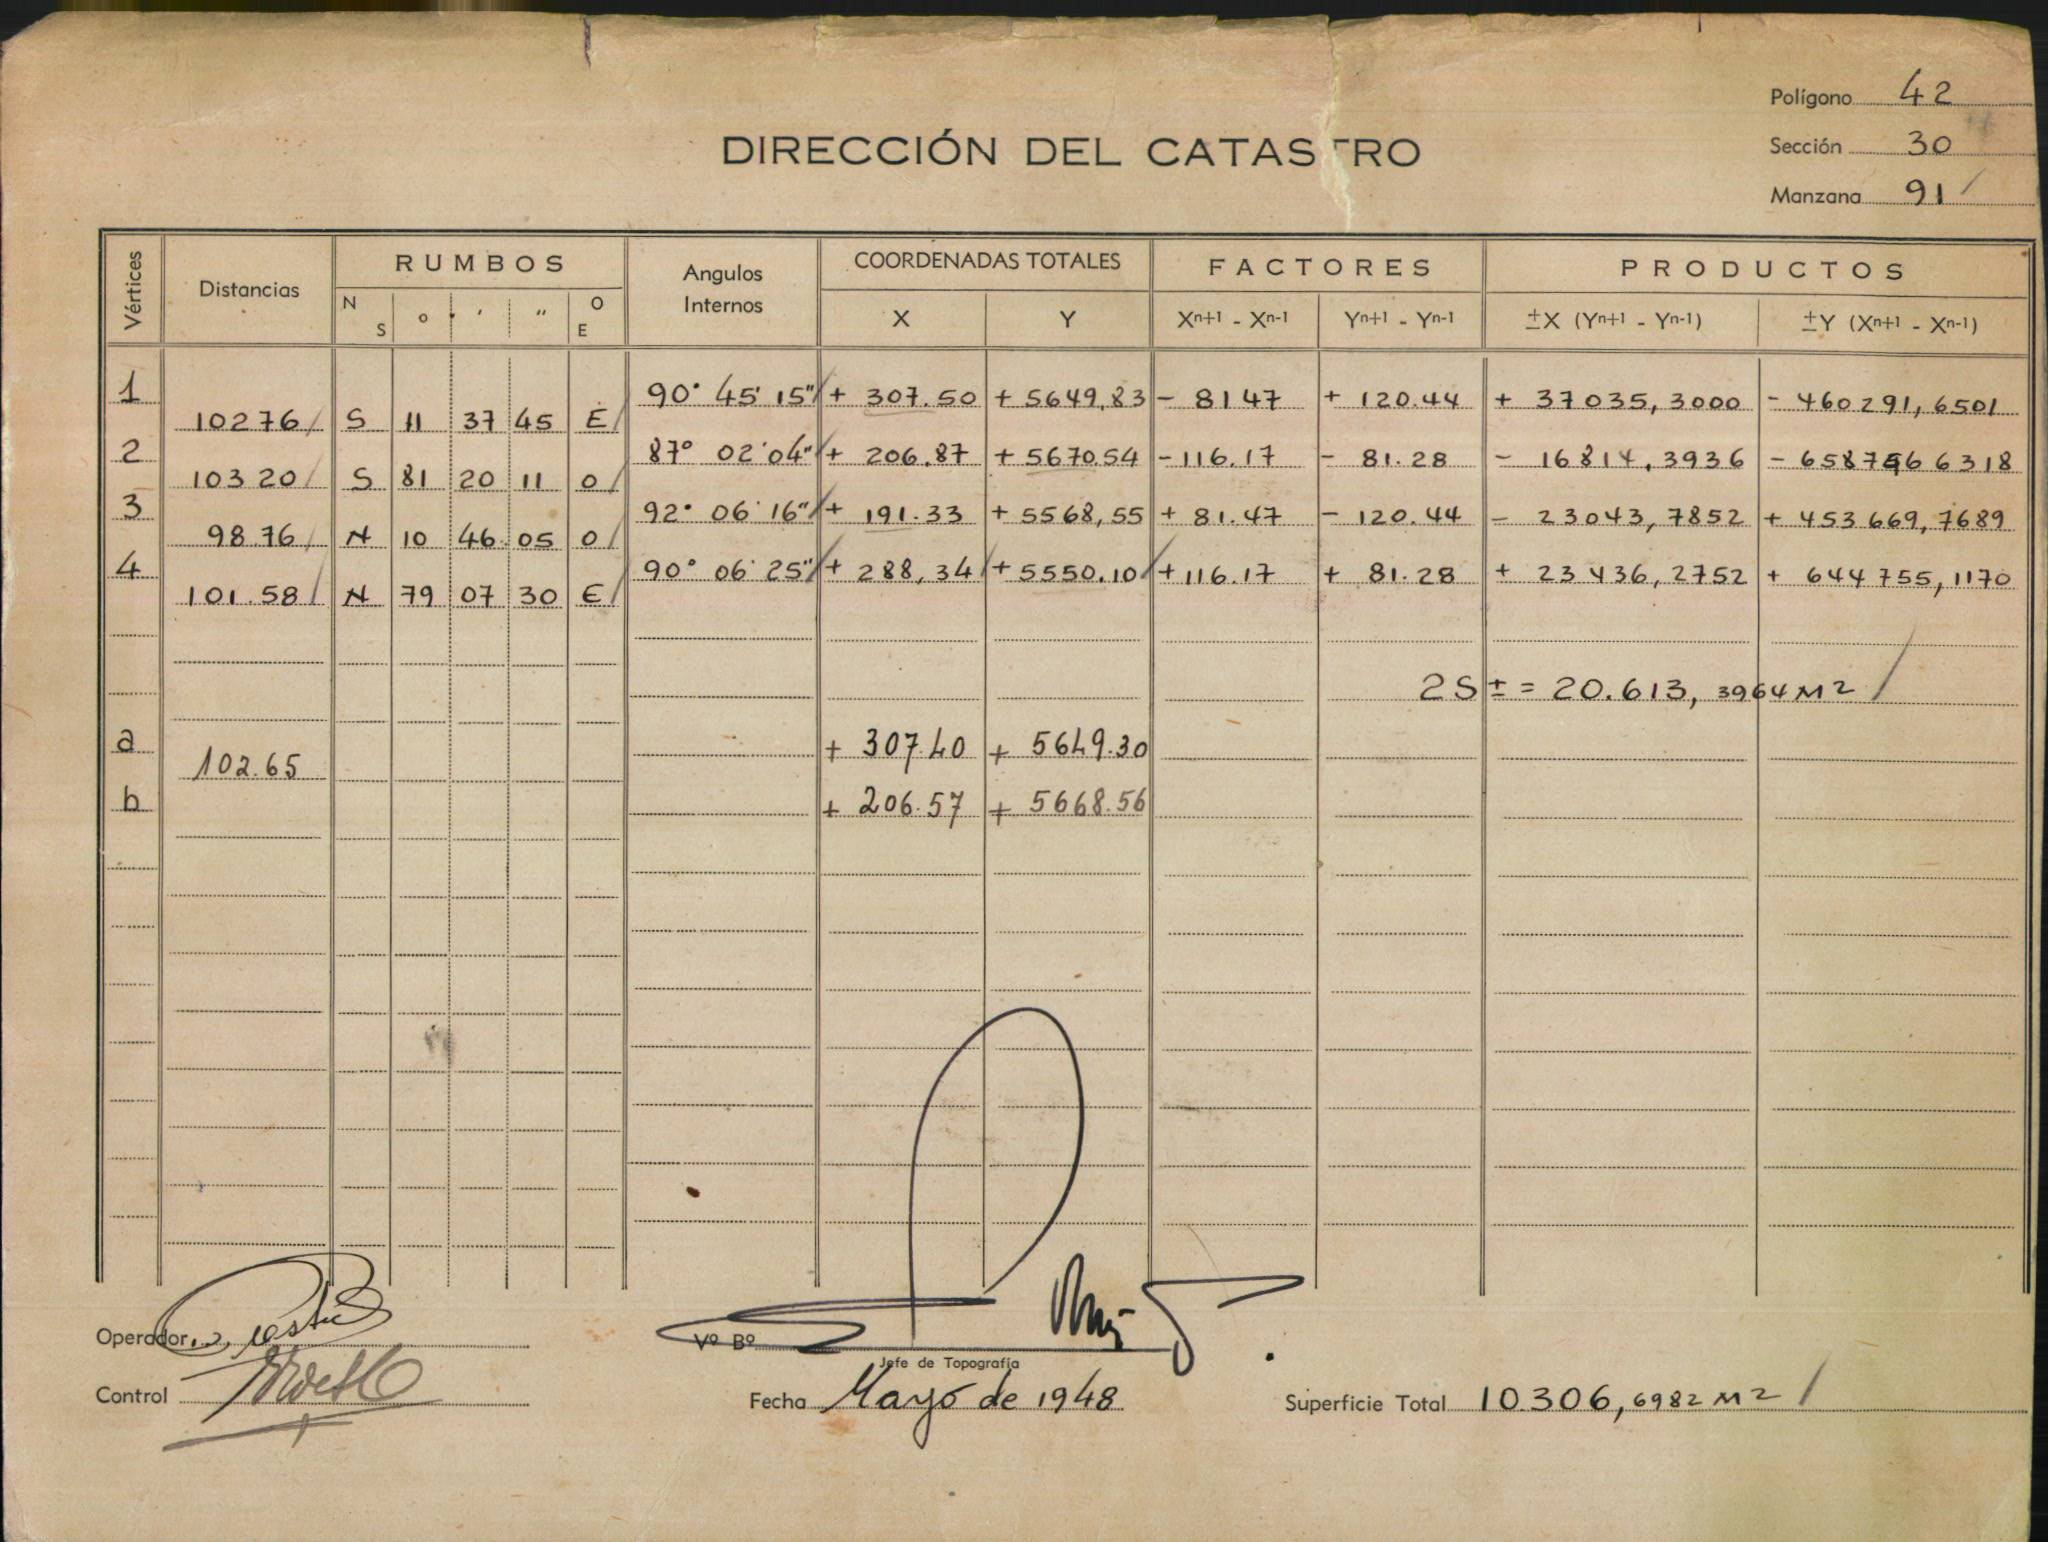 Polígono 42
DIRECCIÓN DEL CATASTRO
Sección 30
Manzana 91
Vértices Distancias RUMBOS Angulos Internos COORDENADAS TOTALES FACTORES PRODUCTOS
N S o ′ ″ O E X Y Xn+1 - Xn-1 Yn+1 - Yn-1 ±X (Yn+1 - Yn-1) ±Y (Xn+1 - Xn-1)
1 90° 45' 15" + 307.50 + 5649,83 - 8147 + 120.44 + 37035,3000 - 460291,6501
10276 S 11 37 45 E
2 87° 02' 04" + 206.87 + 5670.54 - 116.17 - 81.28 - 16814,3936 - 6587466318
10320 S 81 20 11 O
3 92° 06' 16" + 191.33 + 5568,55 + 81.47 - 120.44 - 23043,7852 + 453669,7689
98.76 N 10 46 05 O
4 90° 06' 25" + 288,34 + 5550.10 + 116.17 + 81.28 + 23436,2752 + 644755,1170
101.58 N 79 07 30 E
2S ± = 20.613,3964 M2
a + 307.40 + 5649.30
102.65
b + 206.57 + 5668.56
Operador
Vº Bº
Jefe de Topografía
Control
Fecha Mayo de 1948
Superficie Total 10.306,6982 M2